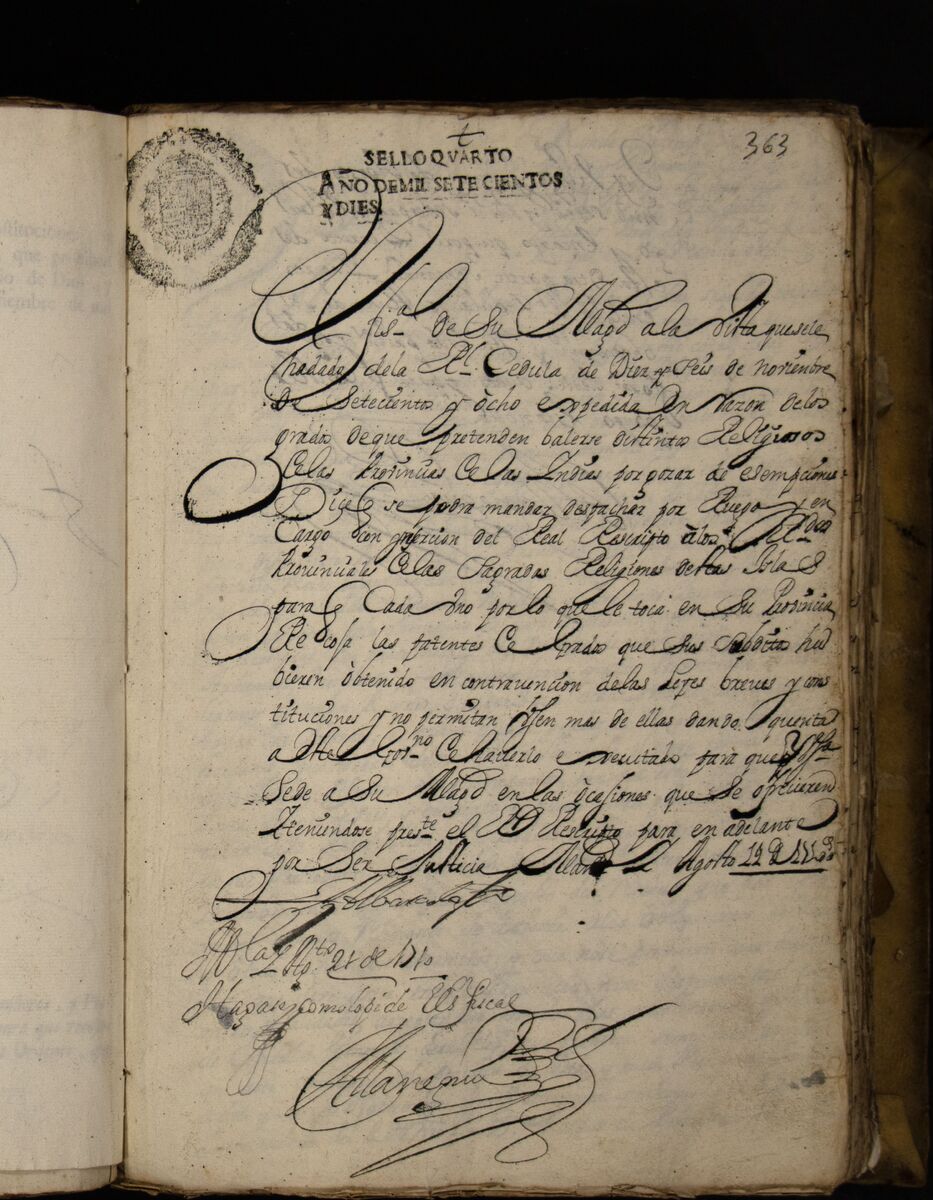 363
SELLO QVARTO
AÑO DE MIL SETECIENTOS
Y DIES
fisᵃ de Su Magᵈ a la Vista que se le
ha dado de la Rˡ Cedula de Diez y seis de noviembre
De Setecientos y ócho expedida En razon de los
grados de que pretenden balerse distintos Religiosos
de las Provincias de las Indias por gozar de esempciones
Dice q se podra mandar despachar por Ruego y en
Cargo con insercion del Real Rescripto alos
Provinciales de las Sagradas Religiones destas Islas
para q Cada Vno por lo que le toca en Su Provincia
Recosa las patentes de grados que sus subditos hu
bieren òbtenido en contravencion de las Leyes breves y cons
tituciones y no permitan Vsen mas de ellas dando quenta
a Este Govⁿᵒ de haverlo executado para que
Se de a Su Magᵈ en las òcasiones que se ofrecieren
teniendose presᵗᵉ el Rˡ Rescripto para en adelante
por Ser Justicia Manˡᵃ y Agosto
Mˡᵃ y Agᵗᵒ 21 de 1710
Hagase como lo pide El Sʳ fiscal